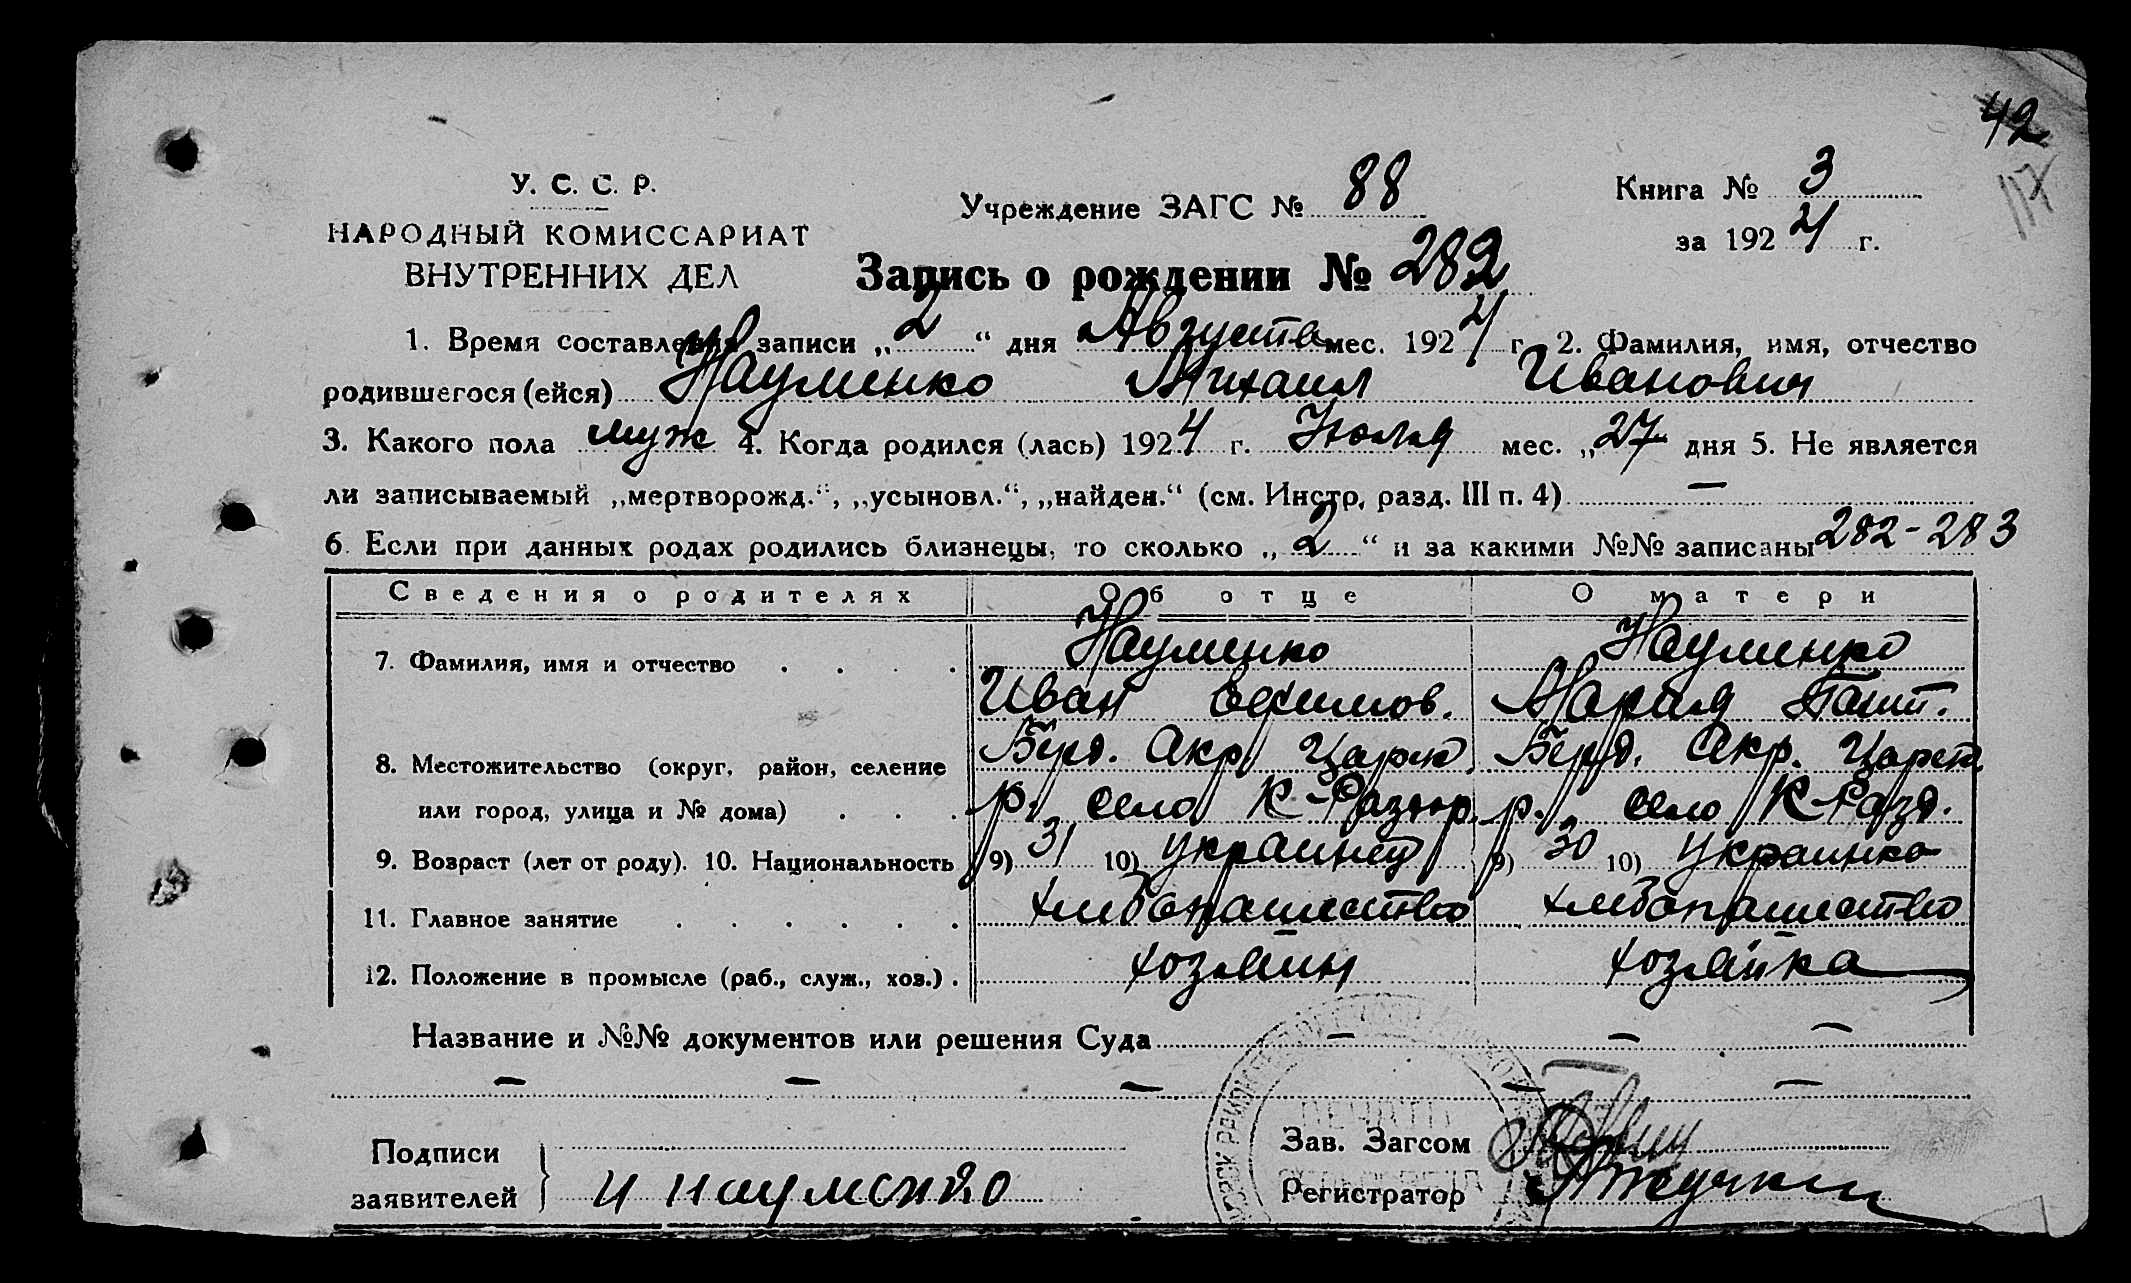 42
117
У. С. С. Р.
НАРОДНЫЙ КОМИССАРИАТ
ВНУТРЕННИХ ДЕЛ
Учреждение ЗАГС № 88
Книга № 3
за 1924 г.
Запись о рождении № 282
1. Время составления записи „2“ дня Августа мес. 1924 г. 2. Фамилия, имя, отчество
родившегося (ейся) Науменко Михаил Иванович
3. Какого пола муж 4. Когда родился (лась) 1924 г. Июля мес. „27“ дня 5. Не является
ли записываемый „мертворожд.“, „усыновл.“, „найден.“ (см. Инстр. разд. III п. 4) —
6. Если при данных родах родились близнецы, то сколько „2“ и за какими №№ записаны 282-283
Сведения о родителях Об отце О матери
7. Фамилия, имя и отчество . . . . Науменко Науменко
Иван Ефимов. Мария
8. Местожительство (округ, район, селение Берд. Окр. Царек. Берд. Окр. Царек.
или город, улица и № дома) . . . р. село К-Раздор. р. село К-Разд.
9. Возраст (лет от роду). 10. Национальность 9) 31 10) украинец 9) 30 10) Украинка
11. Главное занятие . . . . . . хлебопашество хлебопашество
12. Положение в промысле (раб., служ., хоз.) . хозяин хозяйка
Название и №№ документов или решения Суда — — —
— — — — —
Подписи
заявителей
И Науменко
Зав. Загсом
Регистратор